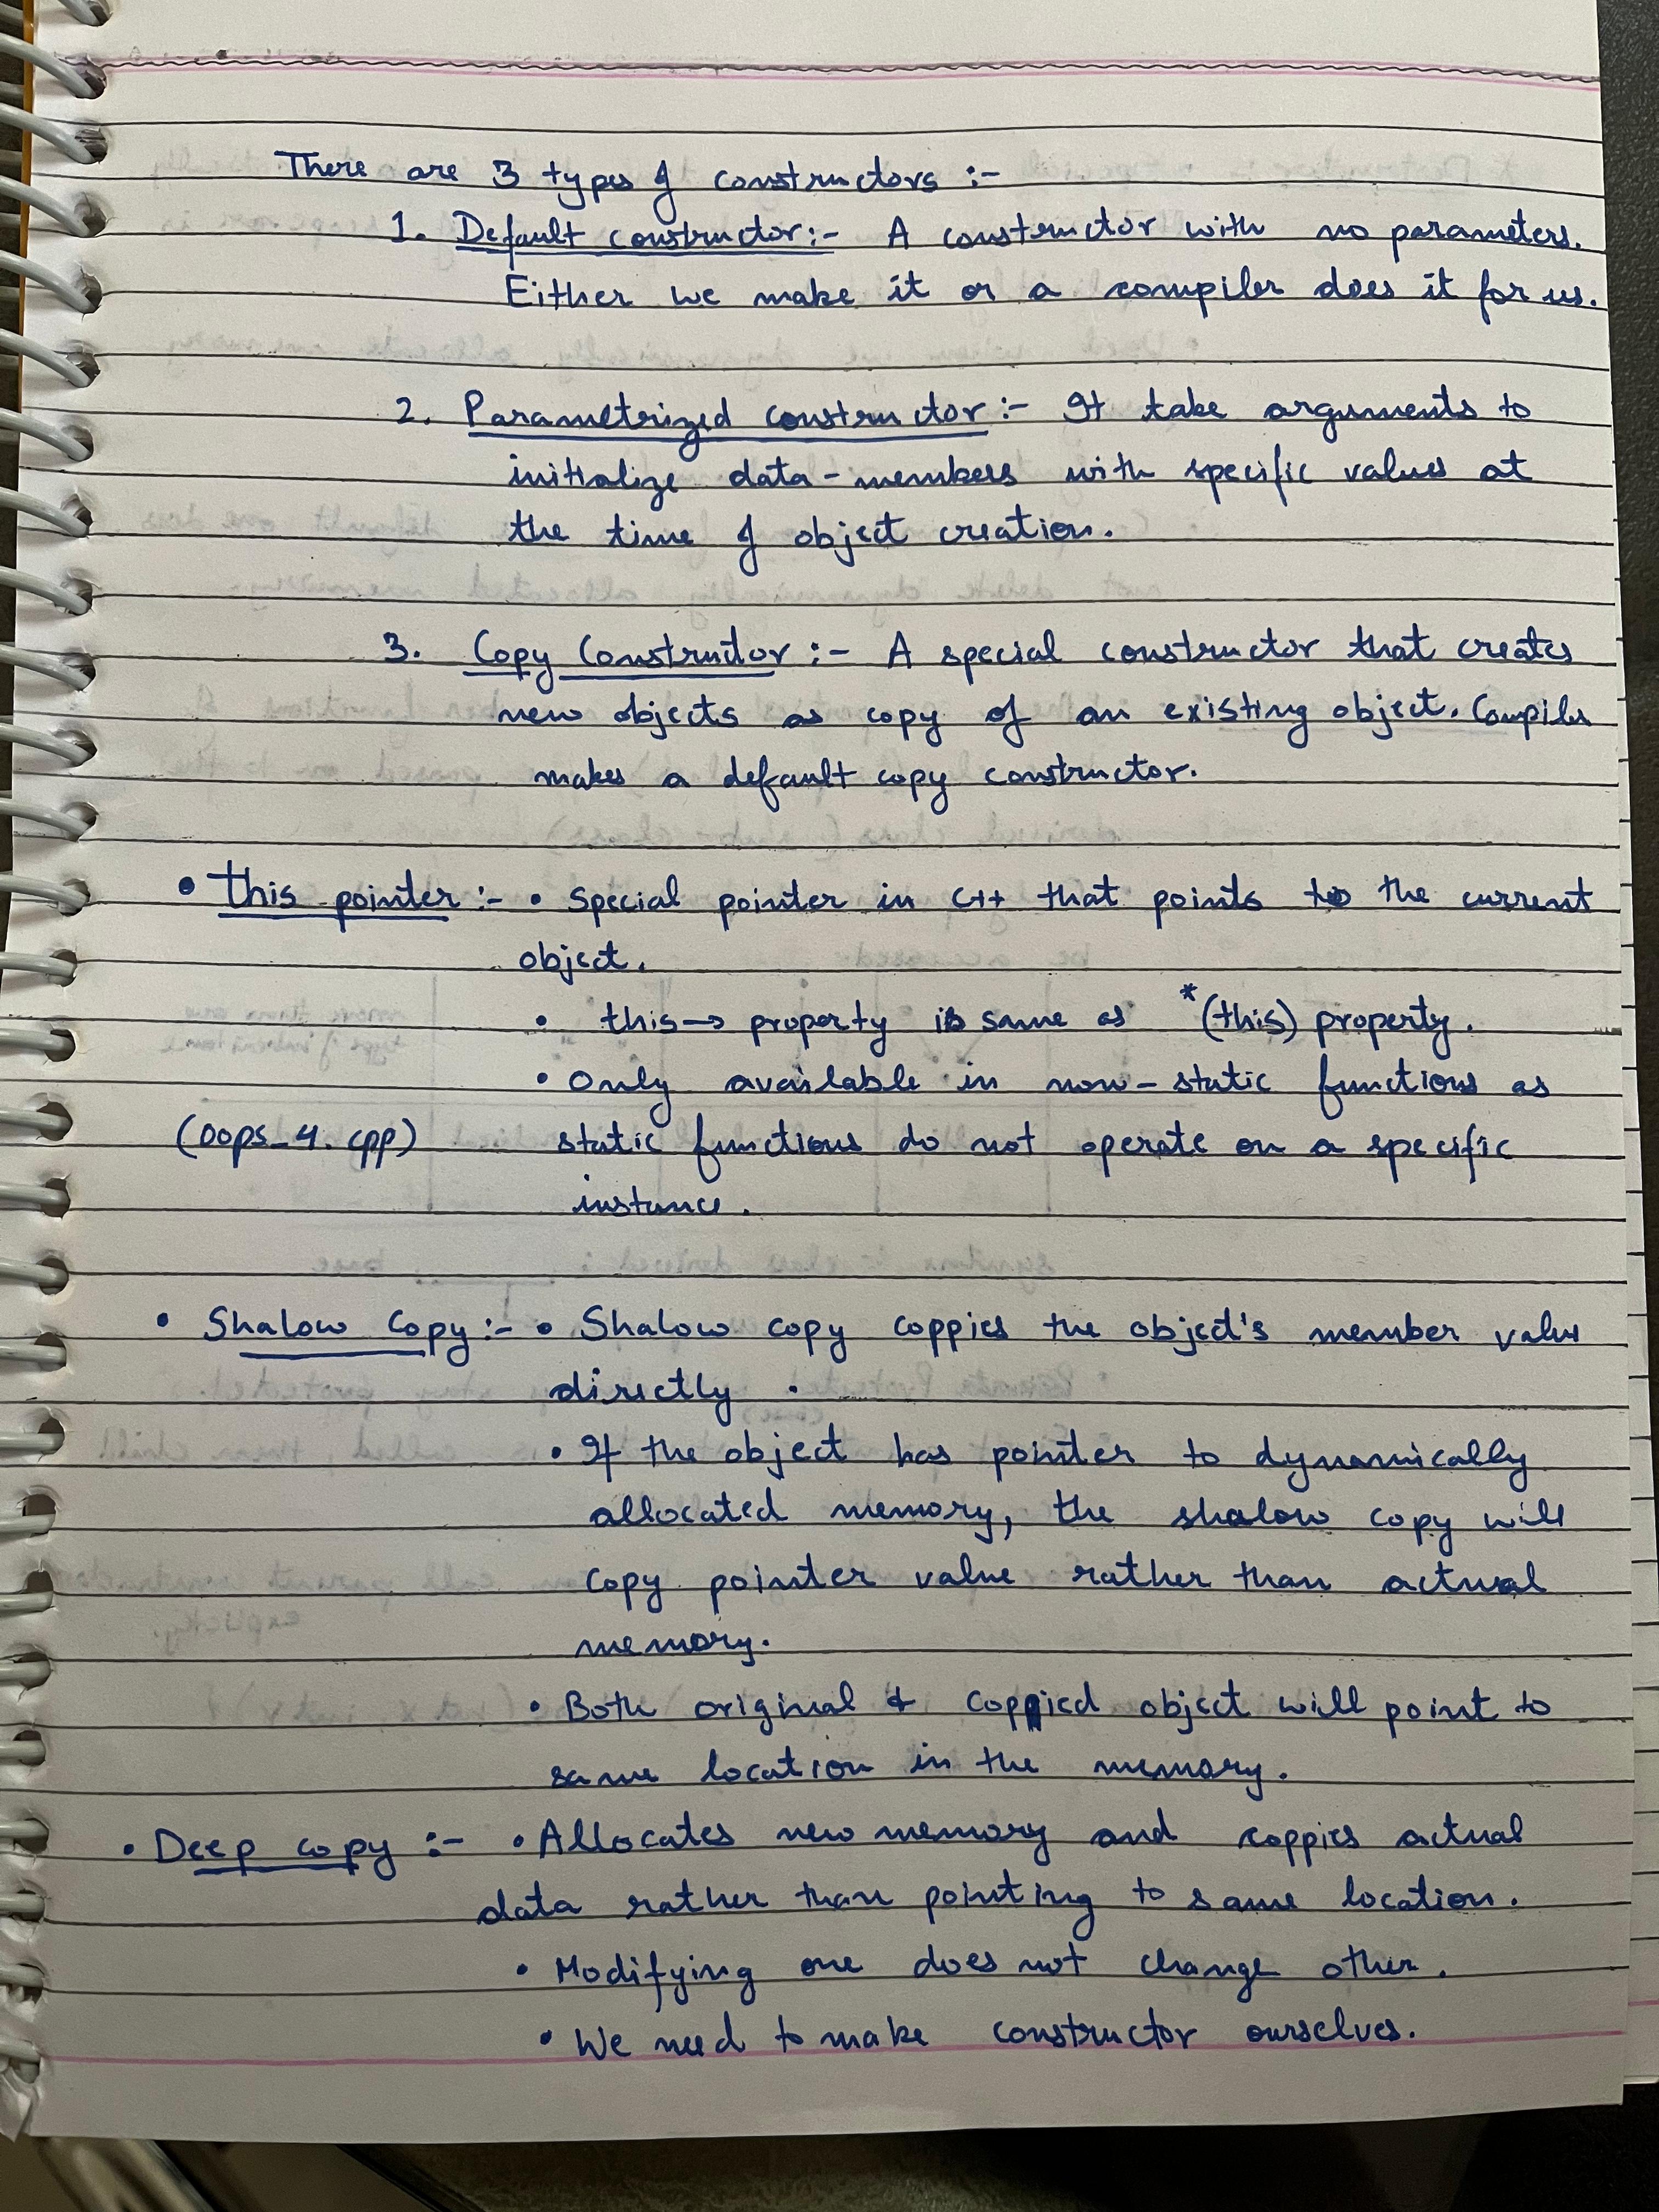 There are 3 types of constructors :-
1. Default constructor:- A constructor with no parameters.
Either we make it or a compiler does it for us.
2. Parametrized constructor:- It take arguments to
initialize data-members with specific values at
the time of object creation.
3. Copy Constructor :- A special constructor that creates
new objects as copy of an existing object. Compiler
makes a default copy constructor.
• this pointer :- • special pointer in C++ that points to the current
object.
• this→ property is same as *(this) property.
• Only available in non-static functions as
(oops_4.cpp) static functions do not operate on a specific
instance.
• Shalow Copy :- • Shalow copy coppies the object's member value
directly .
• If the object has pointer to dynamically
allocated memory, the shalow copy will
copy pointer value rather than actual
memory.
• Both original & coppied object will point to
same location in the memory.
• Deep copy :- • Allocates new memory and coppies actual
data rather than pointing to same location.
• Modifying one does not change other.
• We need to make constructor ourselves.